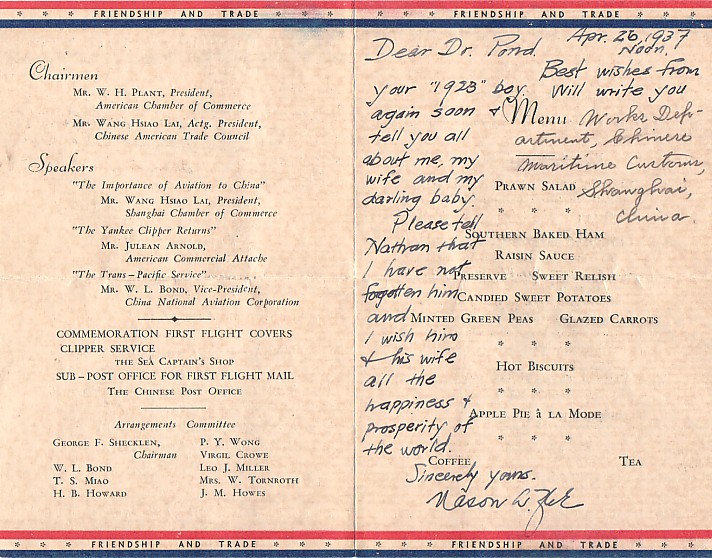 FRIENDSHIP AND TRADE
Chairmen
MR. W. H. PLANT, President,
American Chamber of Commerce
MR. WANG HSIAO LAI, Actg. President,
Chinese American Trade Council
Speakers
"The Importance of Aviation to China"
MR. WANG HSIAO LAI, President,
Shanghai Chamber of Commerce
"The Yankee Clipper Returns"
MR. JULEAN ARNOLD,
American Commercial Attache
"The Trans-Pacific Service"
MR. W. L. BOND, Vice-President,
China National Aviation Corporation
COMMEMORATION FIRST FLIGHT COVERS
CLIPPER SERVICE
THE SEA CAPTAIN'S SHOP
SUB-POST OFFICE FOR FIRST FLIGHT MAIL
THE CHINESE POST OFFICE
Arrangements Committee
GEORGE F. SHECKLEN, Chairman
W. L. BOND
T. S. MIAO
H. B. HOWARD
P. Y. WONG
VIRGIL CROWE
LEO J. MILLER
MRS. W. TORNROTH
J. M. HOWES
FRIENDSHIP AND TRADE
FRIENDSHIP AND TRADE
Apr. 26, 1937
Noon.
Dear Dr. Pond.
Best wishes from
your "1923" boy. Will write you
again soon &
tell you all
about me, my
wife and my
darling baby.
Please tell
Nathan that
I have not
forgotten him
and
I wish him
& his wife
all the
happiness &
prosperity of
the world.
Sincerely yours.
Works Dep-
artment, Chinese
Maritime Customs,
Shanghai,
China.
Menu
PRAWN SALAD
SOUTHERN BAKED HAM
RAISIN SAUCE
PRESERVE SWEET RELISH
CANDIED SWEET POTATOES
MINTED GREEN PEAS GLAZED CARROTS
HOT BISCUITS
APPLE PIE à LA MODE
COFFEE TEA
FRIENDSHIP AND TRADE